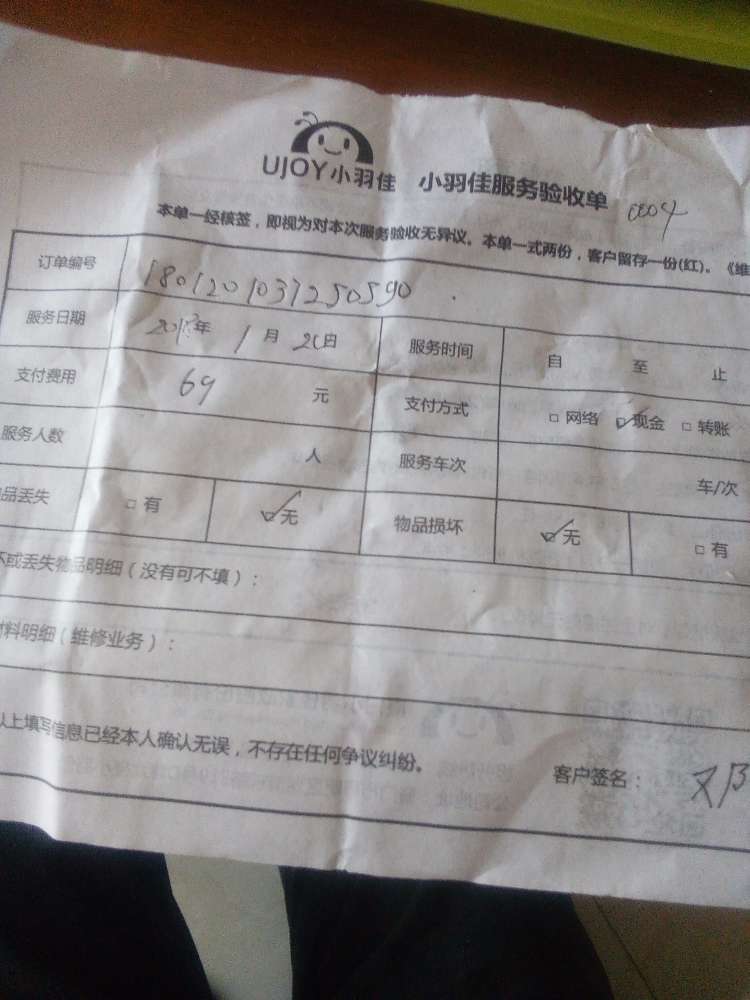 UJOY小羽佳 小羽佳服务验收单 0004
本单一经核签，即视为对本次服务验收无异议。本单一式两份，客户留存一份(红)。《维
订单编号 1801201031250590
服务日期 2018年 1月 20日 服务时间 自 至 止
支付费用 69 元 支付方式 □网络 ☑现金 □转账
服务人数 人 服务车次 车/次
品丢失 □有 ☑无 物品损坏 ☑无 □有
坏或丢失物品明细（没有可不填）：
材料明细（维修业务）：
以上填写信息已经本人确认无误，不存在任何争议纠纷。
客户签名：